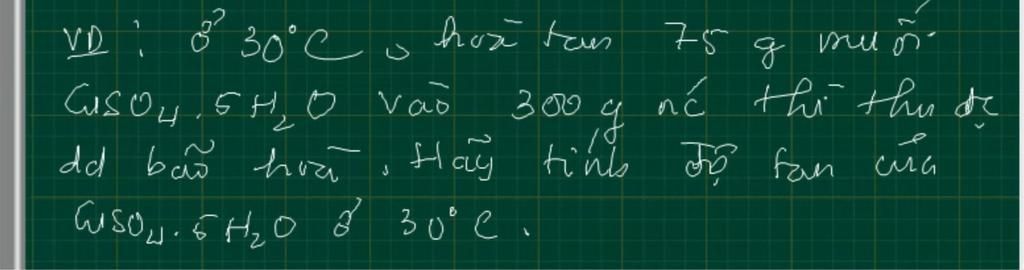 VD : Ở 30°C, hoà tan 75 g muối
CuSO₄.5H₂O vào 300 g nc thì thu đc
dd bão hoà. Hãy tính độ tan của
CuSO₄.5H₂O ở 30°C.